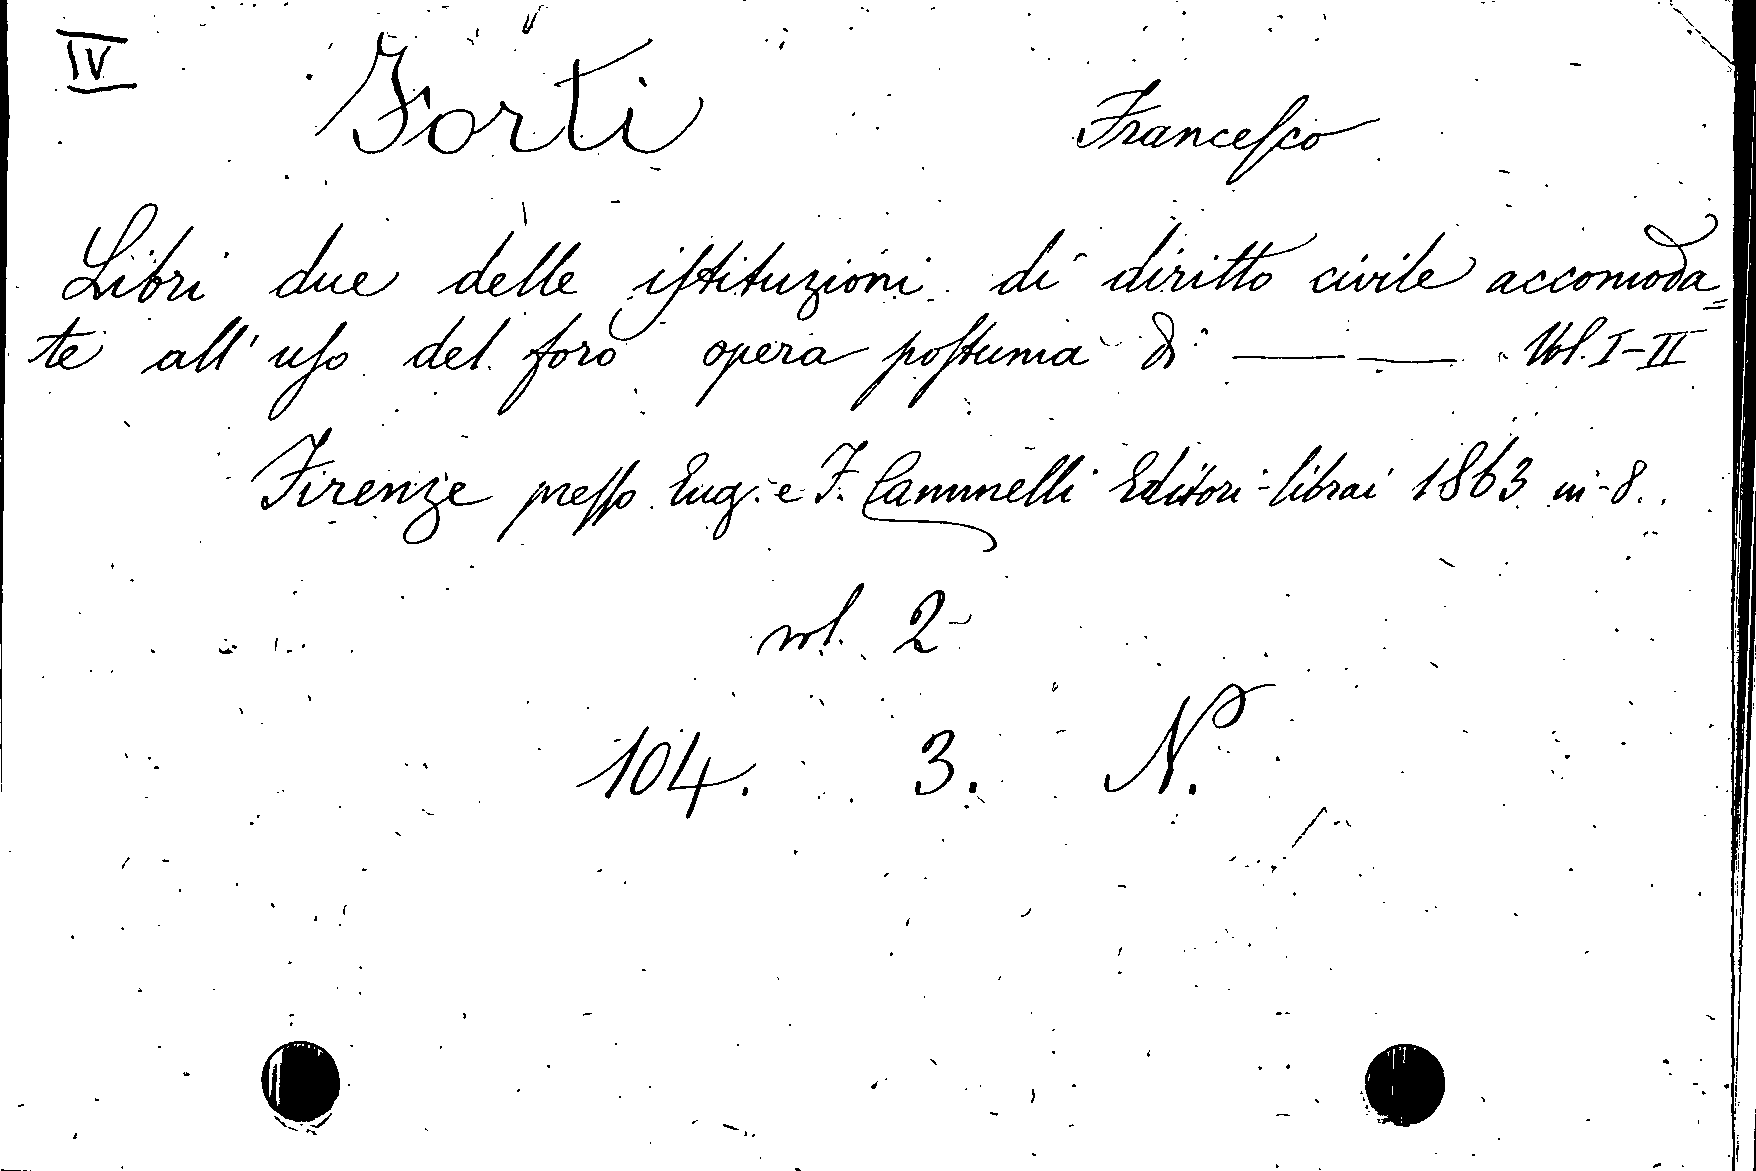 IV
Forti Francesco
Libri due delle istituzioni di diritto civile accomoda=
te all'uso del foro opera postuma di —— —— Vol. I-II
Firenze presso Eug. e F. Cammelli Editori-librai 1863 in-8.
vol. 2
104. 3. N.